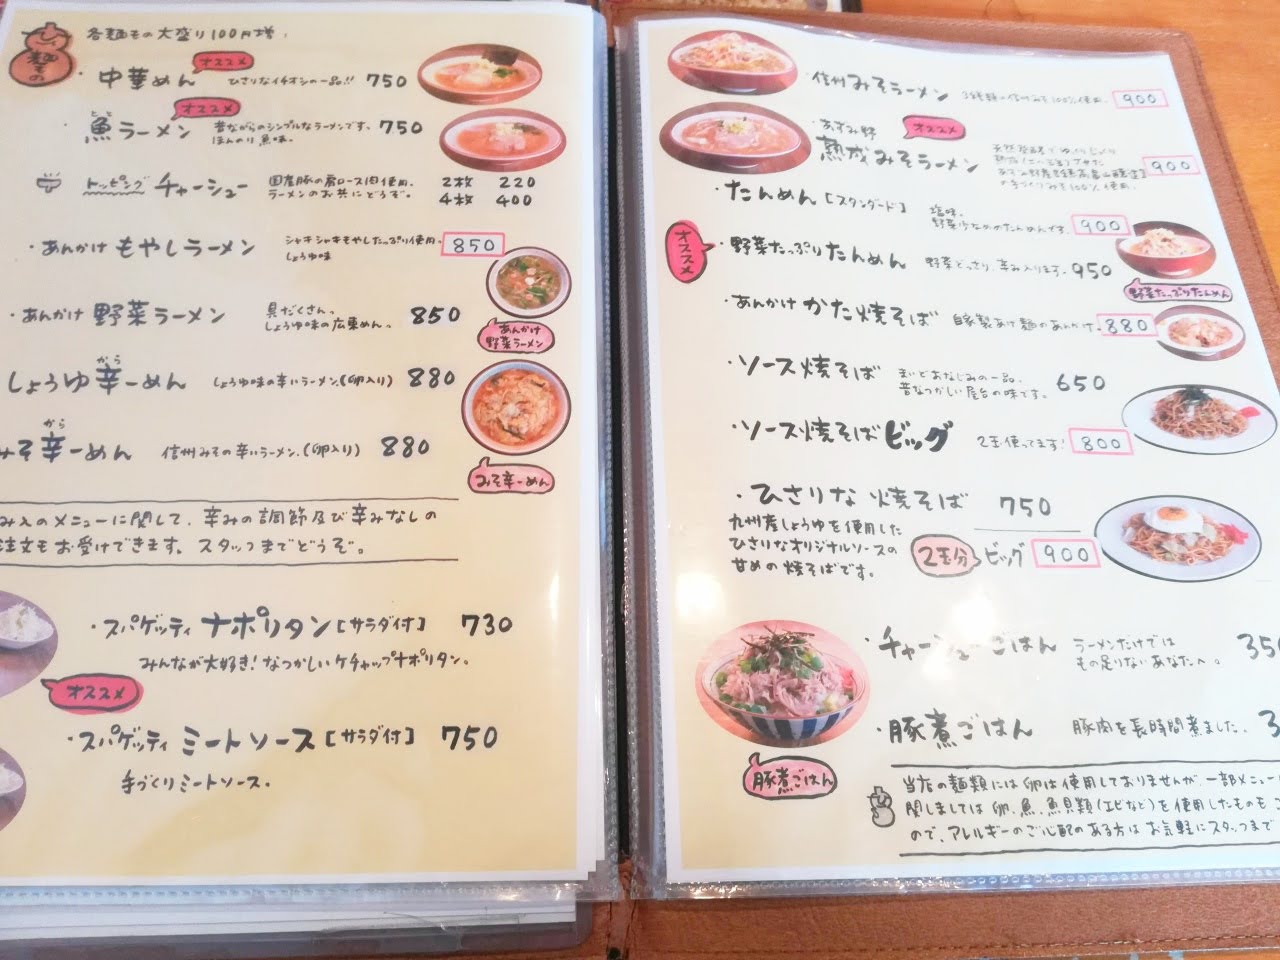 麺もの
各麺もの大盛り100円増。
オススメ
中華めん ひさりなイチオシの一品!! 750
オススメ
とと
魚ラーメン 昔ながらのシンプルなラーメンです。 750
ほんのり魚味。
トッピング チャーシュー 国産豚の肩ロース肉使用。 2枚 220
ラーメンのお共にどうぞ。 4枚 400
・あんかけ もやしラーメン シャキシャキもやしたっぷり使用。 850
しょうゆ味
・あんかけ 野菜ラーメン 具だくさん。 850
しょうゆ味の広東めん。
あんかけ
野菜ラーメン
から
しょうゆ辛ーめん しょうゆ味の辛いラーメン。(卵入り) 880
から
みそ辛ーめん 信州みその辛いラーメン。(卵入り) 880
みそ辛ーめん
み入のメニューに関して、辛みの調節及び辛みなしの
注文もお受けできます。スタッフまでどうぞ。
・スパゲッティ ナポリタン [サラダ付] 730
みんなが大好き!なつかしいケチャップナポリタン。
オススメ
・スパゲッティ ミートソース [サラダ付] 750
手づくりミートソース。
・信州みそラーメン 900
あずみ野 オススメ
熟成みそラーメン 900
手づくりみそを100%使用。
・たんめん [スタンダード] 塩味。 900
野菜少なめのたんめんです。
オススメ
・野菜たっぷりたんめん 野菜どっさり。辛み入ります。 950
野菜たっぷりたんめん
・あんかけ かた焼そば 自家製あげ麺のあんかけ。 880
・ソース焼そば まいどおなじみの一品。 650
昔なつかしい屋台の味です。
・ソース焼そばビッグ 2玉使ってます! 800
・ひさりな 焼そば 750
九州産しょうゆを使用した
ひさりなオリジナルソースの
甘めの焼そばです。
2玉分 ビッグ 900
・チャーシューごはん ラーメンだけでは 350
もの足りないあなたへ。
・豚煮ごはん 豚肉を長時間煮ました。 3
豚煮ごはん
当店の麺類には卵は使用しておりませんが、一部メニュー
関しましては卵、魚、魚貝類(エビなど)を使用したものも
ので、アレルギーのご心配のある方はお気軽にスタッフまで